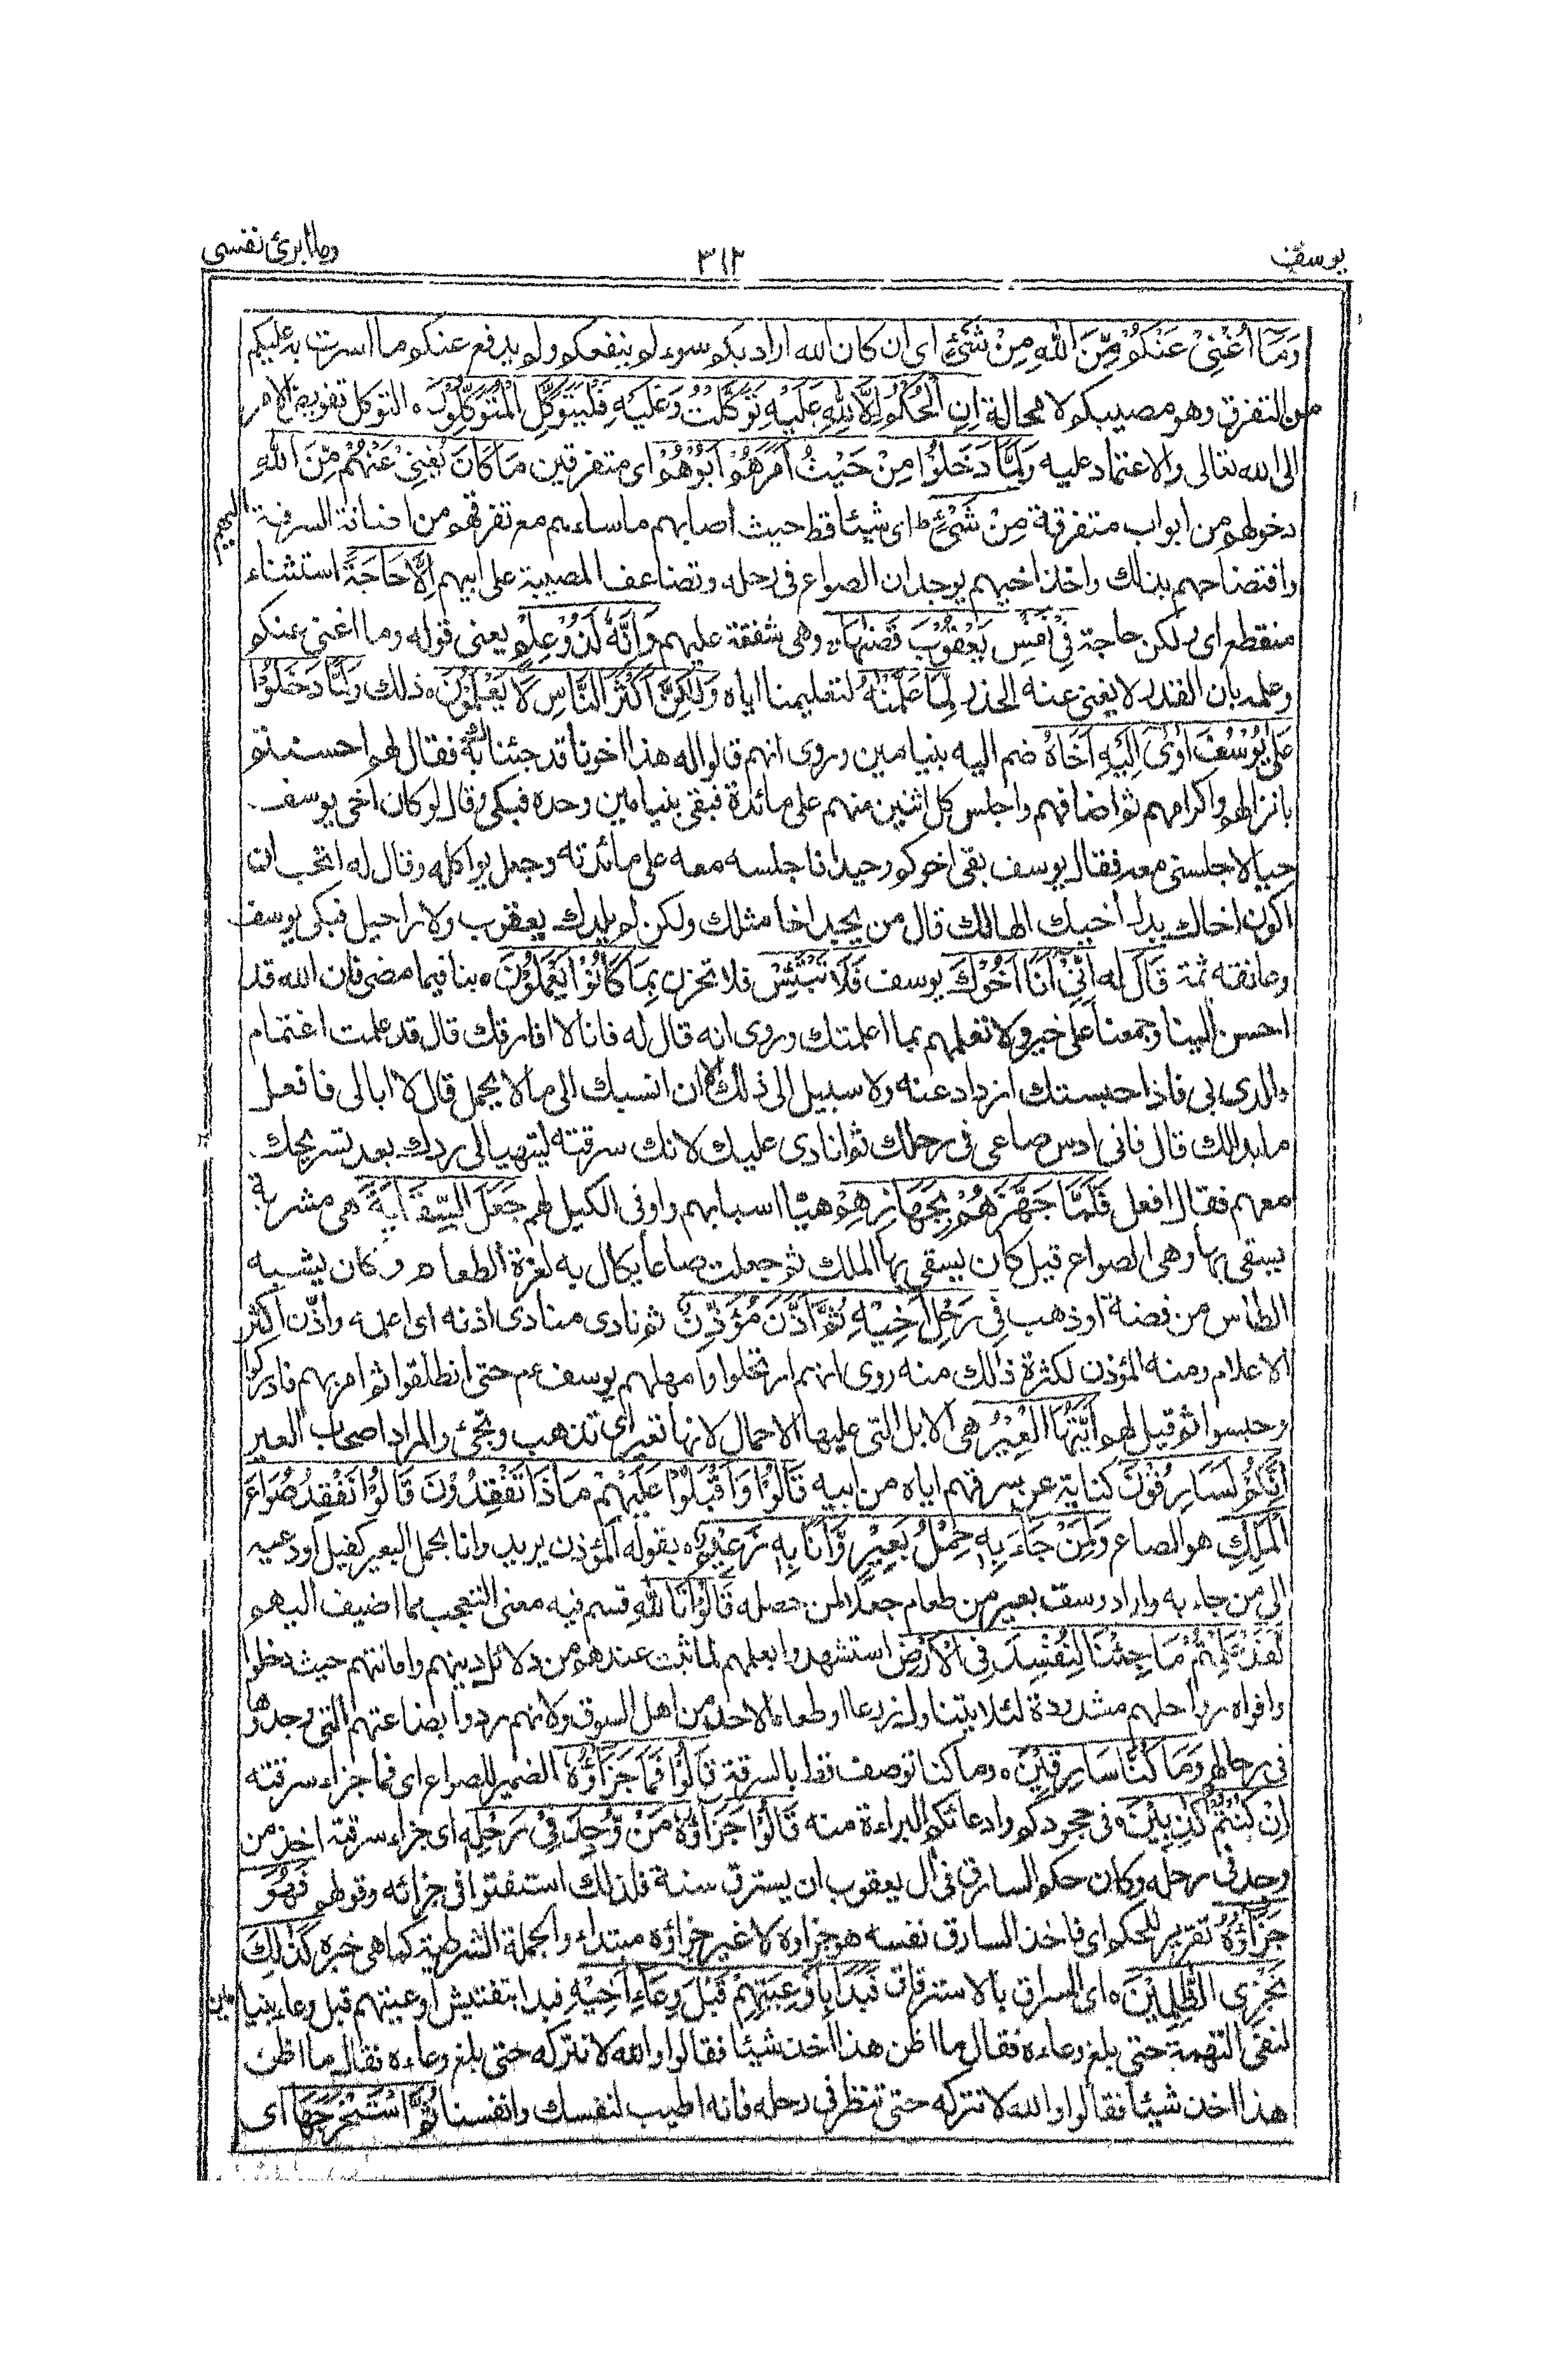 يوسف
٣١٣
وما ابرئ نفسى
وَمَآ اُغْنِىْ عَنْكُمْ مِّنَ اللهِ مِنْ شَىْءٍ اى ان كان الله اراد بكم سوء لم ينفعكم ولم يدفع عنكم ما اشرت به عليكم
من التفرق وهو مصيبكم لا محالة اِنِ الْحُكْمُ اِلَّا لِلّٰهِ عَلَيْهِ تَوَكَّلْتُ وَعَلَيْهِ فَلْيَتَوَكَّلِ الْمُتَوَكِّلُوْنَ ه التوكل تفويض الامر
الى الله تعالى والاعتماد عليه وَلَمَّا دَخَلُوْا مِنْ حَيْثُ اَمَرَهُمْ اَبُوْهُمْ اى متفرقين مَا كَانَ يُغْنِىْ عَنْهُمْ مِّنَ اللهِ
دخولهم من ابواب متفرقة مِنْ شَىْءٍ ط اى شيئا قط حيث اصابهم ما ساءهم مع تفرقهم من اضافة السرقة اليهم
وافتضاحهم بذلك واخذ اخيهم بوجدان الصواع فى رحله وتضاعف المصيبة على ابيهم اِلَّا حَاجَةً استثناء
منقطع اى ولكن حاجة فِىْ نَفْسِ يَعْقُوْبَ قَضٰىهَا ط وهى شفقة عليهم وَاِنَّهٗ لَذُوْ عِلْمٍ يعنى قوله وما اغنى عنكم
وعلمه بان القدر لا يغنى عنه الحذر لِّمَا عَلَّمْنٰهُ لتعليمنا اياه وَلٰكِنَّ اَكْثَرَ النَّاسِ لَا يَعْلَمُوْنَ ه ذلك وَلَمَّا دَخَلُوْا
عَلٰى يُوْسُفَ اٰوٰىٓ اِلَيْهِ اَخَاهُ ضم اليه بنيامين وروى انهم قالوا له هذا اخونا قد جئناك به فقال لهم احسنتم
بانزالهم واكرامهم ثم اضافهم واجلس كل اثنين منهم على مائدة فبقى بنيامين وحده فبكى وقال لو كان اخى يوسف
حيا لاجلسنى معه فقال يوسف بقى اخوكم وحيدا فاجلسه معه على مائدته وجعل يواكله وقال له اتحب ان
اكون اخاك بدل اخيك الهالك قال من يجد اخا مثلك ولكن لم يلدك يعقوب ولا راحيل فبكى يوسف
وعانقه ثمة قَالَ له اِنِّىْٓ اَنَا اَخُوْكَ يوسف فَلَا تَبْتَئِسْ فلا تحزن بِمَا كَانُوْا يَعْمَلُوْنَ ه بنا فيما مضى فان الله قد
احسن الينا وجمعنا على خير ولا تعلمهم بما اعلمتك وروى انه قال له فانا لا افارقك قال قد علمت اغتمام
والدى بى فاذا حبستك ازداد عنه ولا سبيل الى ذلك الا ان انسبك الى ما لا يجمل قال لا ابالى فافعل
ما بدا لك قال فانى ادس صاعى فى رحلك ثم انادى عليك لانك سرقته ليتهيا لى ردك بعد تسريحك
معهم فقال افعل فَلَمَّا جَهَّزَهُمْ بِجَهَازِهِمْ هيئا اسبابهم واوفى الكيل لهم جَعَلَ السِّقَايَةَ هى مشربة
يسقى بها وهى الصواع قيل كان يسقى بها الملك ثم جعلت صاعا يكال به لعزة الطعام وكان يشبه
الطاس من فضة او ذهب فِىْ رَحْلِ اَخِيْهِ ثُمَّ اَذَّنَ مُؤَذِّنٌ ثم نادى منادى اذنه اى اعلمه واذّن اكثر
الاعلام ومنه المؤذن لكثرة ذلك منه روى انهم ارتحلوا وامهلهم يوسف ع م حتى انطلقوا ثم امر بهم فادركوا
وحبسوا ثم قيل لهم اَيَّتُهَا الْعِيْرُ هى الابل التى عليها الاحمال لانها تعير اى تذهب وتجئ والمراد اصحاب العير
اِنَّكُمْ لَسَارِقُوْنَ كناية عن سرقتهم اياه من ابيه قَالُوْا وَاَقْبَلُوْا عَلَيْهِمْ مَاذَا تَفْقِدُوْنَ قَالُوْا نَفْقِدُ صُوَاعَ
الْمَلِكِ هو الصاع وَلِمَنْ جَآءَ بِهٖ حِمْلُ بَعِيْرٍ وَّاَنَا بِهٖ زَعِيْمٌ ه يقوله المؤذن يريد وانا بحمل البعير كفيل اودعيه
الى من جاء به واراد وسق بعير من طعام جعلا لمن حصله قَالُوْا تَاللهِ قسم فيه معنى التعجب مما اضيف اليهم
لَقَدْ عَلِمْتُمْ مَا جِئْنَا لِنُفْسِدَ فِى الْاَرْضِ استشهدوا بعلمهم لما ثبت عندهم من دلائل دينهم وامانتهم حيث دخلوا
وافواه رواحلهم مشدودة لئلا يتناول زرعا او طعاما لاحد من اهل السوق ولانهم ردوا بضاعتهم التى وجدوها
فى رحالهم وَمَا كُنَّا سَارِقِيْنَ ه وما كنا نوصف قط بالسرقة قَالُوْا فَمَا جَزَآؤُهٗ الضمير للصواع اى فما جزاء سرقته
اِنْ كُنْتُمْ كٰذِبِيْنَ ه فى جحودكم وادعائكم البراءة منه قَالُوْا جَزَآؤُهٗ مَنْ وُّجِدَ فِىْ رَحْلِهٖ اى جزاء سرقته اخذ من
وجد فى رحله وكان حكم السارق فى آل يعقوب ان يسترق سنة فلذلك استفتوا فى جزائه وقولهم فَهُوَ
جَزَآؤُهٗ تقرير للحكم اى فاخذ السارق نفسه هو جزاوه لا غير جزاؤه مبتدا والجملة الشرطية كما هى خبره كَذٰلِكَ
نَجْزِى الظّٰلِمِيْنَ ه اى السراق بالاسترقاق فَبَدَاَ بِاَوْعِيَتِهِمْ قَبْلَ وِعَآءِ اَخِيْهِ فبدا بتفتيش اوعيتهم قبل وعاء بنيامين
لنفى التهمة حتى بلغ وعاءه فقال ما اظن هذا اخذ شيئا فقالوا والله لا نتركه حتى بلغ وعاءه فقال ما اظن
هذا اخذ شيئا فقالوا والله لا نتركه حتى تنظر فى رحله فانه اطيب لنفسك وانفسنا ثُمَّ اسْتَخْرَجَهَا اى